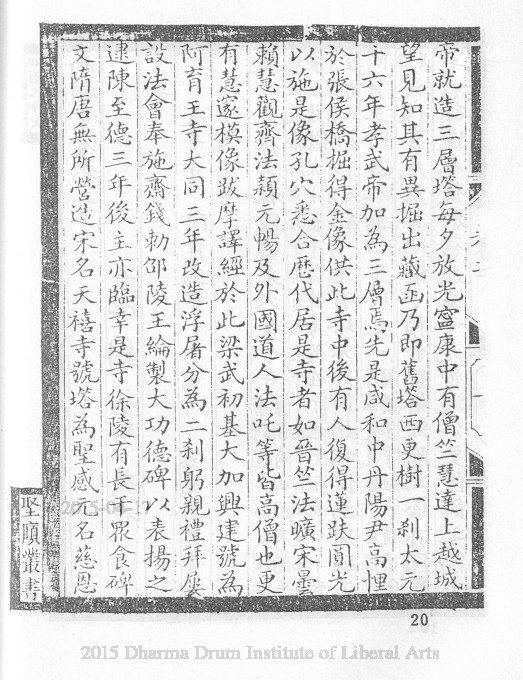 帝就造三層塔每夕放光寧康中有僧竺慧達上越城
望見知其有異掘出藏函乃即舊塔西更樹一刹太元
十六年孝武帝加為三層焉先是咸和中丹陽尹高悝
於張侯橋掘得金像供此寺中後有人復得蓮趺圓光
以施是像孔穴悉合歷代居是寺者如晉竺法曠宋曇
賴慧觀齊法頴元暢及外國道人法吒等皆高僧也更
有慧邃模像跋摩譯經於此梁武初基大加興建號為
阿育王寺大同三年改造浮屠分為二刹躬親禮拜屢
設法會奉施齋錢勅邵陵王綸製大功德碑以表揚之
逮陳至德三年後主亦臨幸是寺徐陵有長干眾食碑
文隋唐無所營造宋名天禧寺號塔為聖感元名慈恩
堅瓠叢書
20
2015 Dharma Drum Institute of Liberal Arts